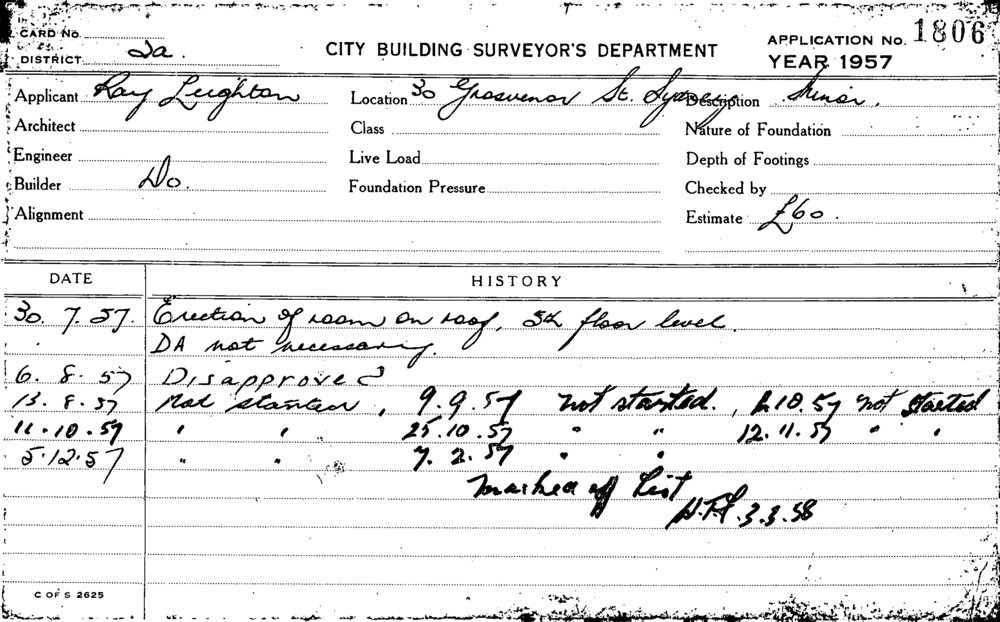 CARD No.
DISTRICT 2a.
CITY BUILDING SURVEYOR'S DEPARTMENT
APPLICATION No. 1806
YEAR 1957
Applicant Ray Leighton Location 30 Grosvenor St. Sydney Description Minor.
Architect Class Nature of Foundation
Engineer Live Load Depth of Footings
Builder Do. Foundation Pressure Checked by
Alignment Estimate £60.
DATE HISTORY
30. 7. 57. Erection of room on roof, 5th floor level.
DA not necessary.
6. 8. 57 Disapproved
13. 8. 57 Not started, 9.9.57 not started., 2.10.57 not started
11.10.57 " " 25.10.57 " " 12.11.57 " "
5.12.57 " " 7.2.57 " "
Marked off list
3.3.58
C OF S 2625